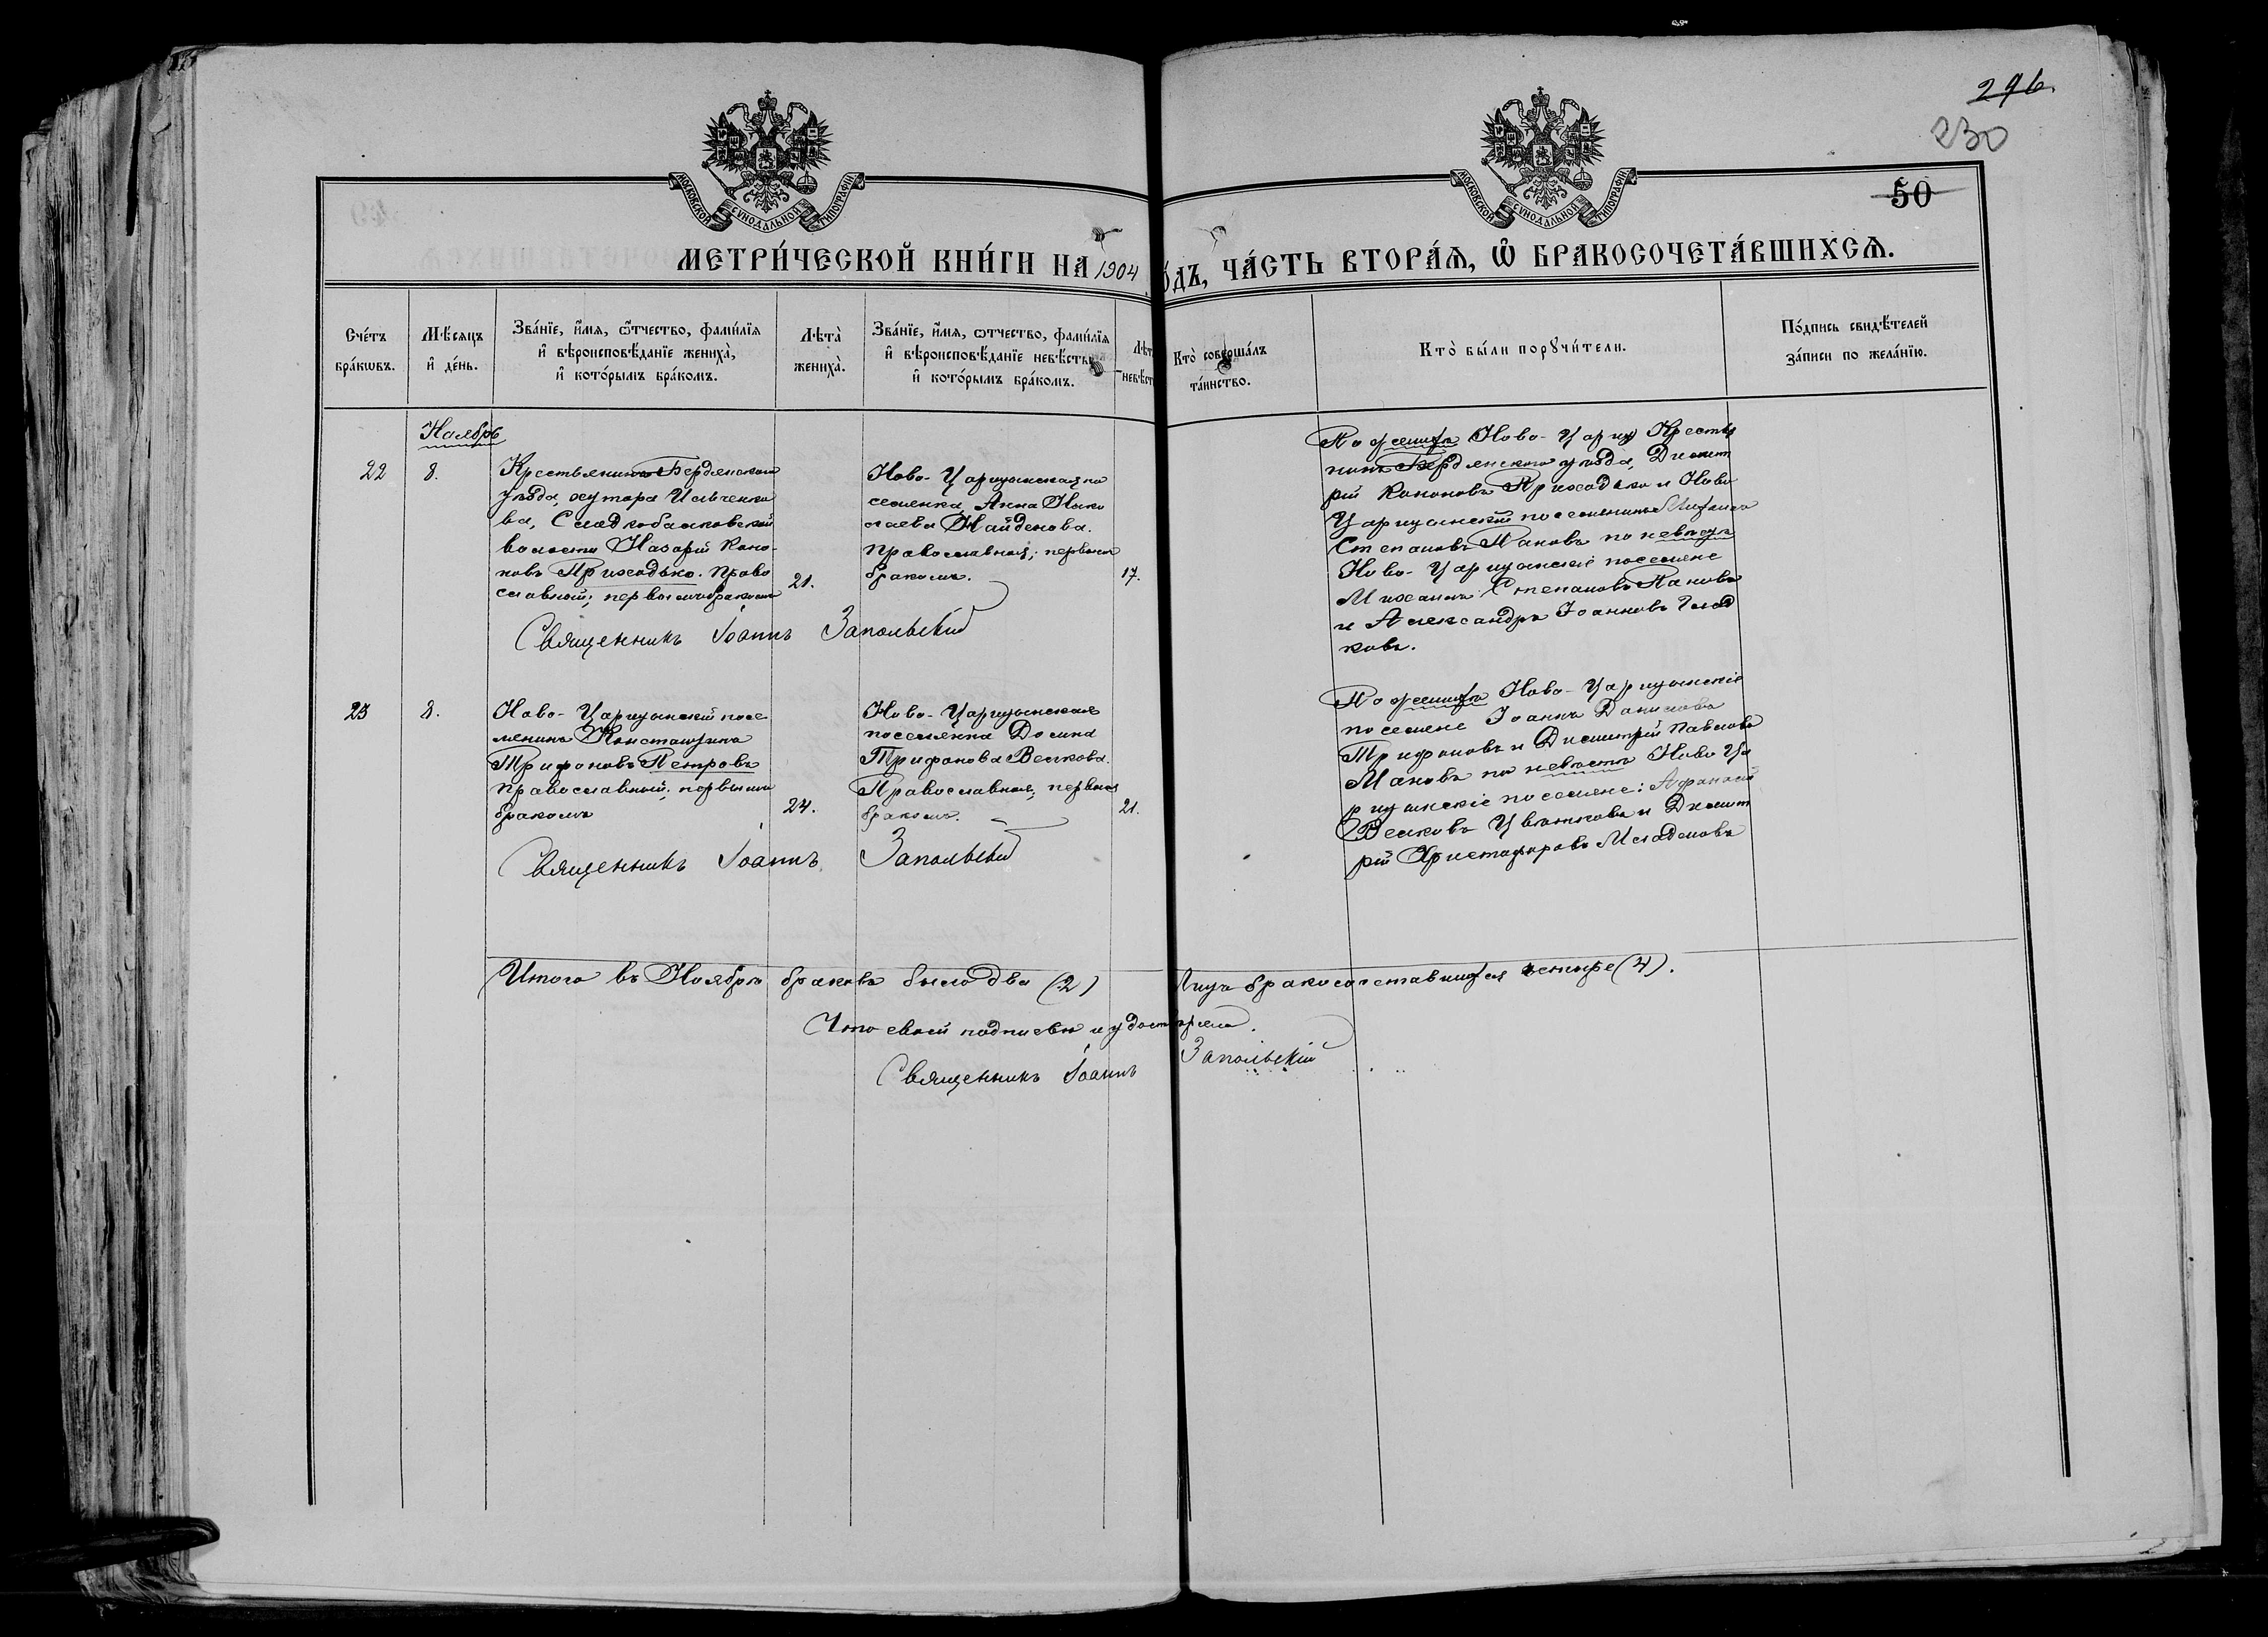 296.
230
50
МОСКОВСКОЙ СѴНОДАЛЬНОЙ ТИПОГРАФІИ
МОСКОВСКОЙ СѴНОДАЛЬНОЙ ТИПОГРАФІИ
МЕТРИ́ЧЕСКОЙ КНИ́ГИ НА 1904 ГО́ДЪ, ЧА́СТЬ ВТОРА́Ѧ, Ѽ БРАКОСОЧЕТА́ВШИХСѦ.
Сче́тъ бра́кѡвъ.
Мѣ́сяцъ и҆ де́нь.
Зва́нїе, и҆́мѧ, ѻ҆́тчество, фами́лїѧ и҆ вѣроисповѣ́данїе жениха̀, и҆ кото́рымъ бра́комъ.
Лѣта̀ жениха̀.
Зва́нїе, и҆́мѧ, ѻтчество, фами́лїѧ и҆ вѣроисповѣ́данїе невѣ́сты, и҆ кото́рымъ бра́комъ.
Лѣт невѣст
Кто̀ соверша́лъ та́инство.
Кто̀ бы́ли порꙋчи́тели.
По́дпись свидѣ́телей за́писи по жела́нїю.
Ноябрь
22
8.
Крестьянинъ Бердянскаго
уѣзда, хутора Ильченко
ва, Сладкобалковской
волости Назарій Коно-
новъ Приходько. Право
славный; первымъ бракомъ
21.
Ново-Царицынская по
селенка Анна Нико
лаева Найденова.
Православная; первымъ
бракомъ.
17.
По женихѣ Ново-Цариц Крестья
нинъ Бердянскаго уѣзда, Димит
рій Кононовъ Приходько и Ново
Царицынскій поселенинъ Михаилъ
Степановъ Пановъ по невѣстѣ
Ново-Царицынскіе поселяне
Михаилъ Степановъ Пановъ
и Александръ Іоанновъ Глад
ковъ.
Священникъ Іоаннъ Запольскій
23
8.
Ново-Царицынскій посе
ленинъ Константинъ
Трифоновъ Петровъ
православный; первымъ
бракомъ
24.
Ново-Царицынская
поселянка Домна
Трифонова Велкова.
Православная; первымъ
бракомъ.
21.
По женихѣ Ново-Царицынскіе
поселяне Іоаннъ Даниловъ
Трифоновъ и Димитрій Павловъ
Мановъ по невѣстѣ Ново Ца
рицынскіе поселяне: Афанасій
Велковъ Цвѣтковъ и Димит
рій Христофоровъ Младеновъ
Священникъ Іоаннъ Запольскій
Итого въ Ноябрѣ браковъ было два (2) Лицъ бракосочетавшихся четыре (4).
Что своей подписью и удостовѣряю.
Священникъ Іоаннъ Запольскій